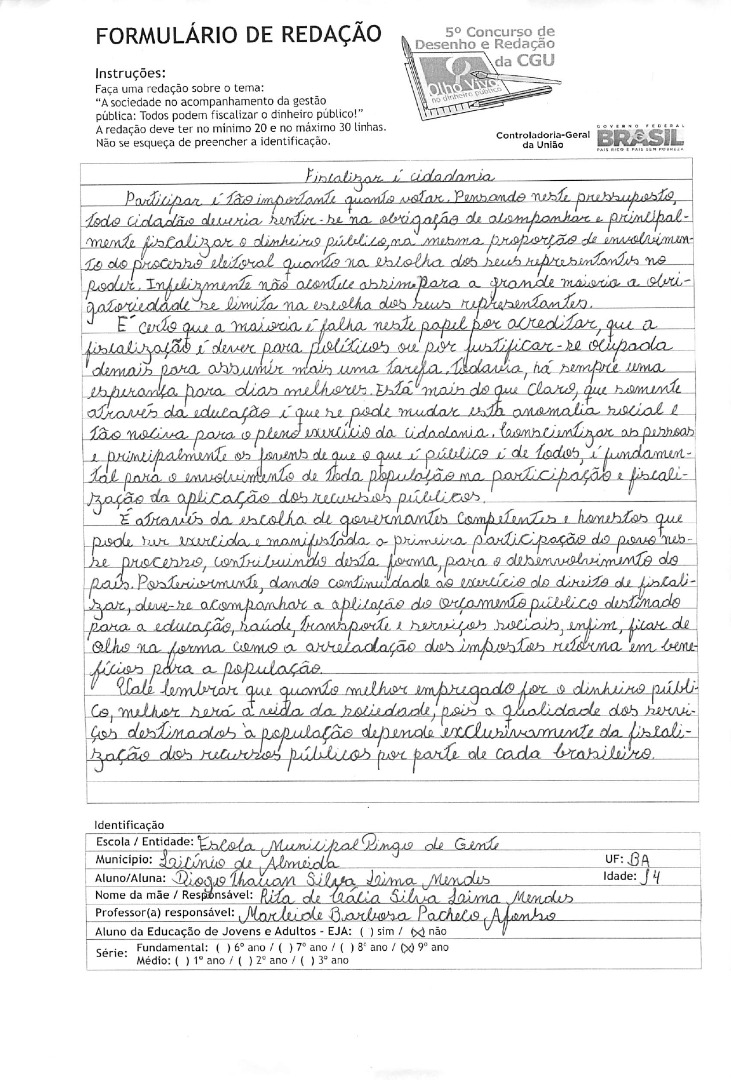 FORMULÁRIO DE REDAÇÃO
5º Concurso de
Desenho e Redação
da CGU
Olho Vivo
no dinheiro público
Instruções:
Faça uma redação sobre o tema:
"A sociedade no acompanhamento da gestão
pública: Todos podem fiscalizar o dinheiro público!"
A redação deve ter no mínimo 20 e no máximo 30 linhas.
Não se esqueça de preencher a identificação.
Controladoria-Geral
da União
GOVERNO FEDERAL
BRASIL
PAÍS RICO É PAÍS SEM POBREZA
Fiscalizar é cidadania
Participar é tão importante quanto votar. Pensando neste pressuposto,
todo cidadão deveria sentir-se na obrigação de acompanhar e principal-
mente fiscalizar o dinheiro público, na mesma proporção de envolvimen-
to do processo eleitoral quanto na escolha dos seus representantes no
poder. Infelizmente não acontece assim. Para a grande maioria a obri-
gatoriedade se limita na escolha dos seus representantes.
É certo que a maioria é falha neste papel por acreditar, que a
fiscalização é dever para políticos ou por justificar-se ocupada
demais para assumir mais uma tarefa. Todavia, há sempre uma
esperança para dias melhores. Está mais do que claro, que somente
através da educação é que se pode mudar esta anomalia social e
tão nociva para o pleno exercício da cidadania. Conscientizar as pessoas
e principalmente os jovens de que o que é público é de todos, é fundamen-
tal para o envolvimento de toda população na participação e fiscali-
zação da aplicação dos recursos públicos.
É através da escolha de governantes competentes e honestos que
pode ser exercida e manifestada a primeira participação do povo nes-
se processo, contribuindo desta forma, para o desenvolvimento do
país. Posteriormente, dando continuidade ao exercício do direito de fiscali-
zar, deve-se acompanhar a aplicação do orçamento público destinado
para a educação, saúde, transporte e serviços sociais, enfim, ficar de
olho na forma como a arrecadação dos impostos retorna em bene-
fícios para a população.
Vale lembrar que quanto melhor empregado for o dinheiro públi-
co, melhor será a vida da sociedade, pois a qualidade dos servi-
ços destinados à população depende exclusivamente da fiscali-
zação dos recursos públicos por parte de cada brasileiro.
Identificação
Escola / Entidade: Escola Municipal Pingo de Gente
Município: Licínio de Almeida UF: BA
Aluno/Aluna: Diogo Thauan Silva Laima Mendes Idade: 14
Nome da mãe / Responsável: Rita de Cácia Silva Laima Mendes
Professor(a) responsável: Marleide Barbosa Pacheco Afonso
Aluno da Educação de Jovens e Adultos - EJA: ( ) sim / (x) não
Série: Fundamental: ( ) 6º ano / ( ) 7º ano / ( ) 8º ano / (x) 9º ano
Médio: ( ) 1º ano / ( ) 2º ano / ( ) 3º ano